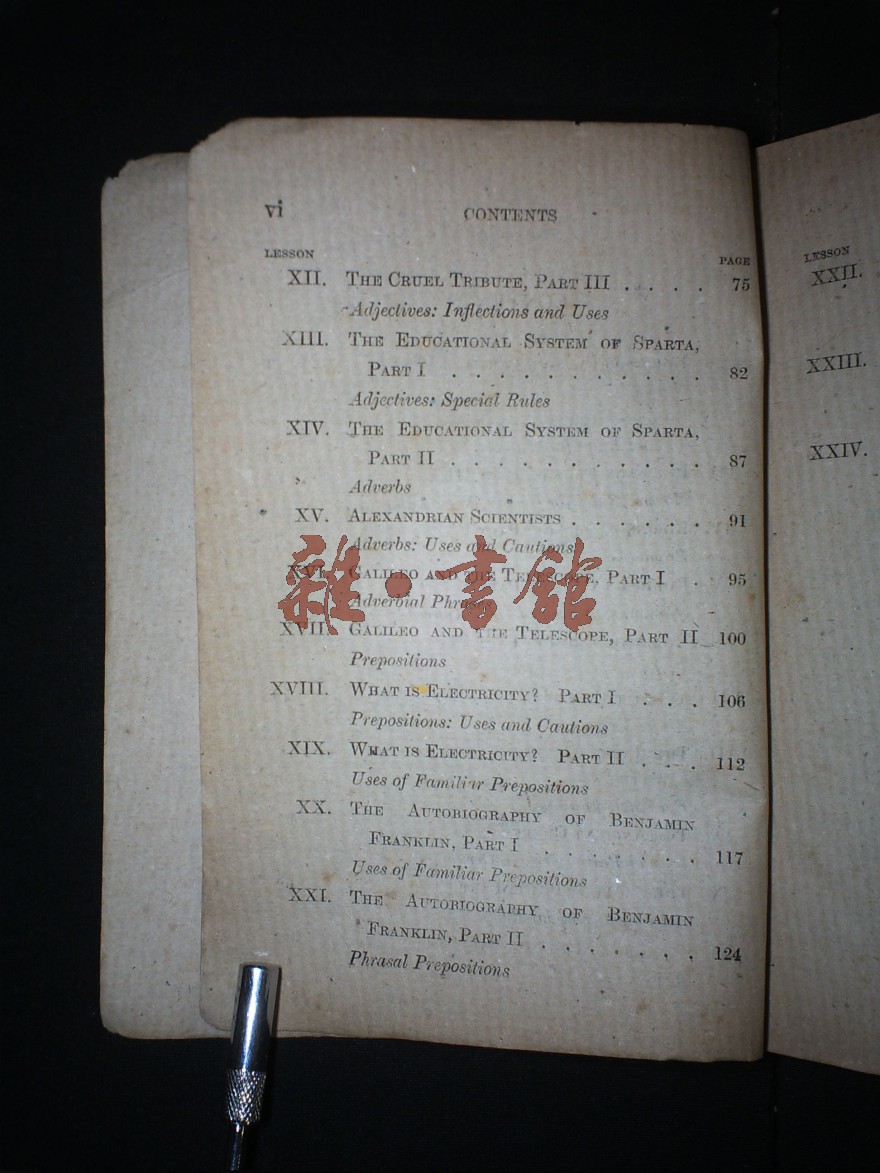 vi CONTENTS
LESSON PAGE
XII. THE CRUEL TRIBUTE, PART III . . . . 75
Adjectives: Inflections and Uses
XIII. THE EDUCATIONAL SYSTEM OF SPARTA,
PART I . . . . . . . . . . . 82
Adjectives: Special Rules
XIV. THE EDUCATIONAL SYSTEM OF SPARTA,
PART II . . . . . . . . . . . 87
Adverbs
XV. ALEXANDRIAN SCIENTISTS . . . . . . 91
Adverbs: Uses and Cautions
XVI. GALILEO AND THE TELESCOPE, PART I . 95
Adverbial Phrases
XVII. GALILEO AND THE TELESCOPE, PART II 100
Prepositions
XVIII. WHAT IS ELECTRICITY? PART I . . . 106
Prepositions: Uses and Cautions
XIX. WHAT IS ELECTRICITY? PART II . . . 112
Uses of Familiar Prepositions
XX. THE AUTOBIOGRAPHY OF BENJAMIN
FRANKLIN, PART I . . . . . . . 117
Uses of Familiar Prepositions
XXI. THE AUTOBIOGRAPHY OF BENJAMIN
FRANKLIN, PART II . . . . . . . 124
Phrasal Prepositions
雜·書館
LESSON
XXII.
XXIII.
XXIV.